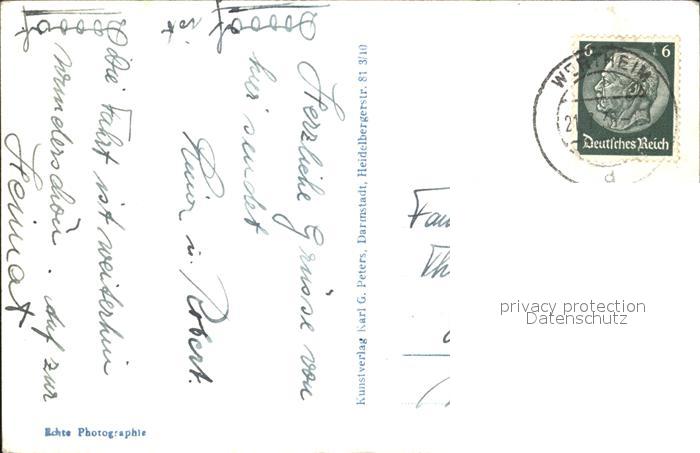 Herzliche Grüsse von
hier sendet
u. Robert.
Die Fahrt ist weiterhin
wunderschön. Auf zur
Heimat
Kunstverlag Karl G. Peters, Darmstadt, Heidelbergerstr. 81 3/10
Echte Photographie
WERTHEIM
21
d
6 6
Deutsches Reich
Fam
Th
privacy protection
Datenschutz